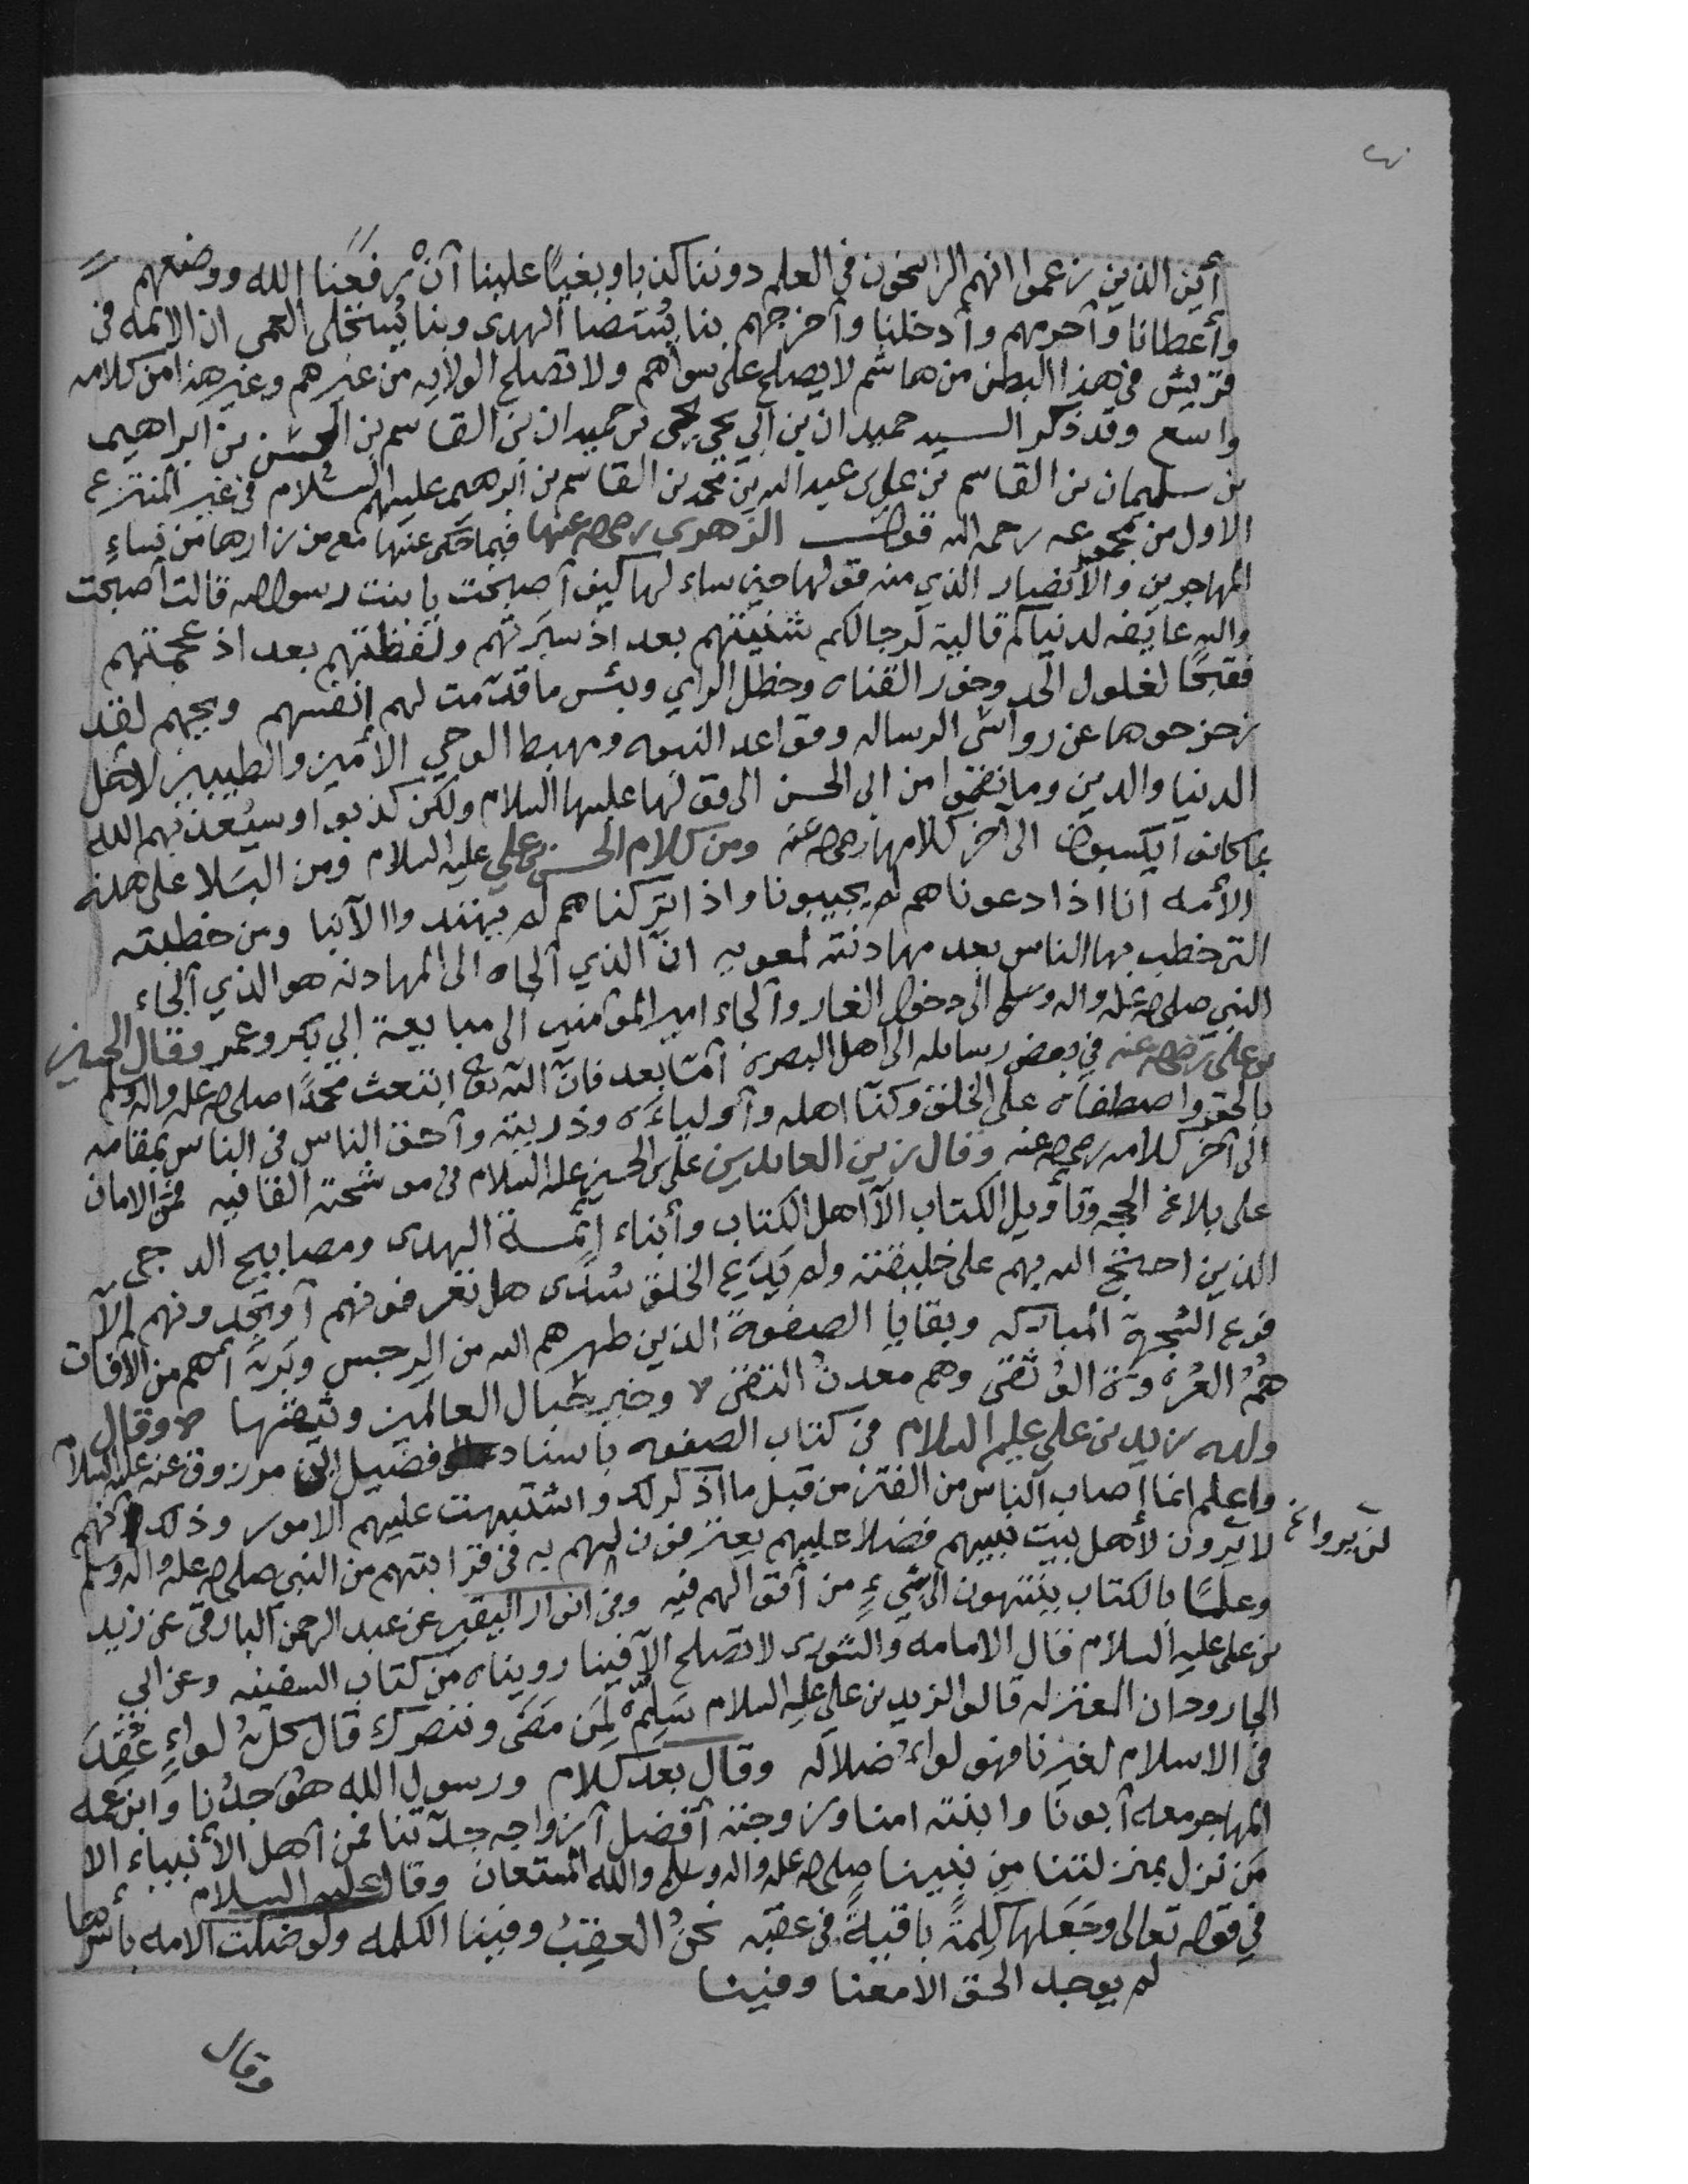 أين الذين زعموا انهم الراسخون في العلم دوننا كذبا وبغيًا علينا أنْ رفعَنا الله ووضعهم
وأعطانا وأحرمهم وأدخلنا وأخرجهم بنا يُستضا الهدى وبنا يُستجلى العمى ان الائمه في
قريش في هذا البطن من هاشم لا يصلح على سواهم ولا تصلح الولايه من غيرهم وغير هذا من كلامه
واسع وقد ذكر السيد حميدان بن أبي يحيى يحيى بن حميدان بن القاسم بن الحسن بن ابراهيم
بن سليمان بن القاسم بن علي بن عبد الله بن محمد بن القاسم بن ابرهيم عليهم السلام في غير المنتزع
الاول من مجموعه رحمه الله قول الزهرى رضي الله عنها فيما حكى عنها مع من زارها من نساءِ
المهاجرين والأنصار الذي منه قولها حين ساء لها كيف أصبحت يا بنت رسول الله قالت أصبحت
والله عايفه لدنياكم قالية لرجالكم شنيتهم بعد اذ سبرتهم ولفظتهم بعد اذ عجمتهم
فقبحًا لغلول الحد وخور القناه وخطل الراي وبئس ما قدّمت لهم انفسهم ويحهم لقد
زحزحوها عن رواسى الرساله وقواعد النبوه ومهبط الوحي الأمين والطبيين لاهل
الدنيا والدين وما نقموا من ابي الحسن الى قولها عليها السلام ولكن كذبوا وسيُعذبهم الله
بما كانوا يكسبون الى آخر كلامها رضي الله عنه ومن كلام الحسن بن علي عليه السلام ومن البلا على هذه
الأمه انا اذا دعوناهم لم يجيبونا واذا تركناهم لم يهتدوا الا بنا ومن خطبته
التي خطب بها الناس بعد مهادنته لمعويه انّ الذي ألجاه الى المهادنه هو الذي ألجاء
النبي صلى الله عليه واله وسلم الى دخول الغار وألجاء امير المؤمنين الى مبايعة ابي بكر وعمر وقال الحسين
بن علي رضي الله عنه في بعض رسايله الى اهل البصره أمّا بعد فانّ الله تعالى ابتعث محمدًا صلى الله عليه واله وسلم
بالحق واصطفاه على الخلق وكنّا اهله وأولياءَه وذريته وأحق الناس في الناس بمقامه
الى آخر كلامه رضي الله عنه وقال زين العابدين علي بن الحسين عليه السلام في موشحته القافيه فمن الامان
على بلاغ الحجه وتأويل الكتاب الّا اهل الكتاب وأبناء ائمة الهدى ومصابيح الدجى
الذين احتج الله بهم على خليقته ولم يَدَع الخلق سُدَى هل تعرفونهم أو تجدونهم إلّا
فرع الشجرة المباركه وبقايا الصفوة الذين طهرهم الله من الرجس وبَرّأهم من الآفات
همُ العُروَة الوُثقى وهم معدنُ التقى وخير حبال العالمين وثيقها وقال
ولده زيد بن علي عليهم السلام في كتاب الصفوه باسناد الى فضيل ابن مرزوق عنه عليه السلام
واعلم انما اصاب الناس من الفتن من قبل ما اذكر لك واشتبهت عليهم الامور وذلك لأنهم
لا يرون لأهل بيت نبيهم فضلًا عليهم يعترفون لهم به في قرابتهم من النبي صلى الله عليه واله وسلم
لن يروا
وعلمًا بالكتاب ينتهون الى شيءٍ من أقوالهم فيه وفي انوار اليقين عن عبد الرحمن البارقي عن زيد
بن علي عليه السلام قال الامامه والشورى لا تصلح الا فينا رويناه من كتاب السفينه وعن ابي
الجارود ان المعتزله قالوا لزيد بن علي عليه السلام سَلِّم لِمَن مَضَى وننصرك قال كلُّ لواءٍ عُقِدَ
في الاسلام لغيرنا فهو لواءُ ضلاله وقال بعد كلام ورسول الله هُوَ جدُنا وابن عمه
المهاجر معه أبونا وابنته امنا وزوجته أفضل أزواجه جدّتنا فمن أهل الأنبياء الا
مَن نزل بمنزلتنا مِن نبينا صلى الله عليه واله وسلم والله المستعان وقال عليه السلام
في قوله تعالى وجَعَلها كَلِمَةً باقيةً في عقبه نحنُ العقبُ وفينا الكلمه ولو ضلت الامه بأسرها
لم يوجد الحق الا معنا وفينا
وقال